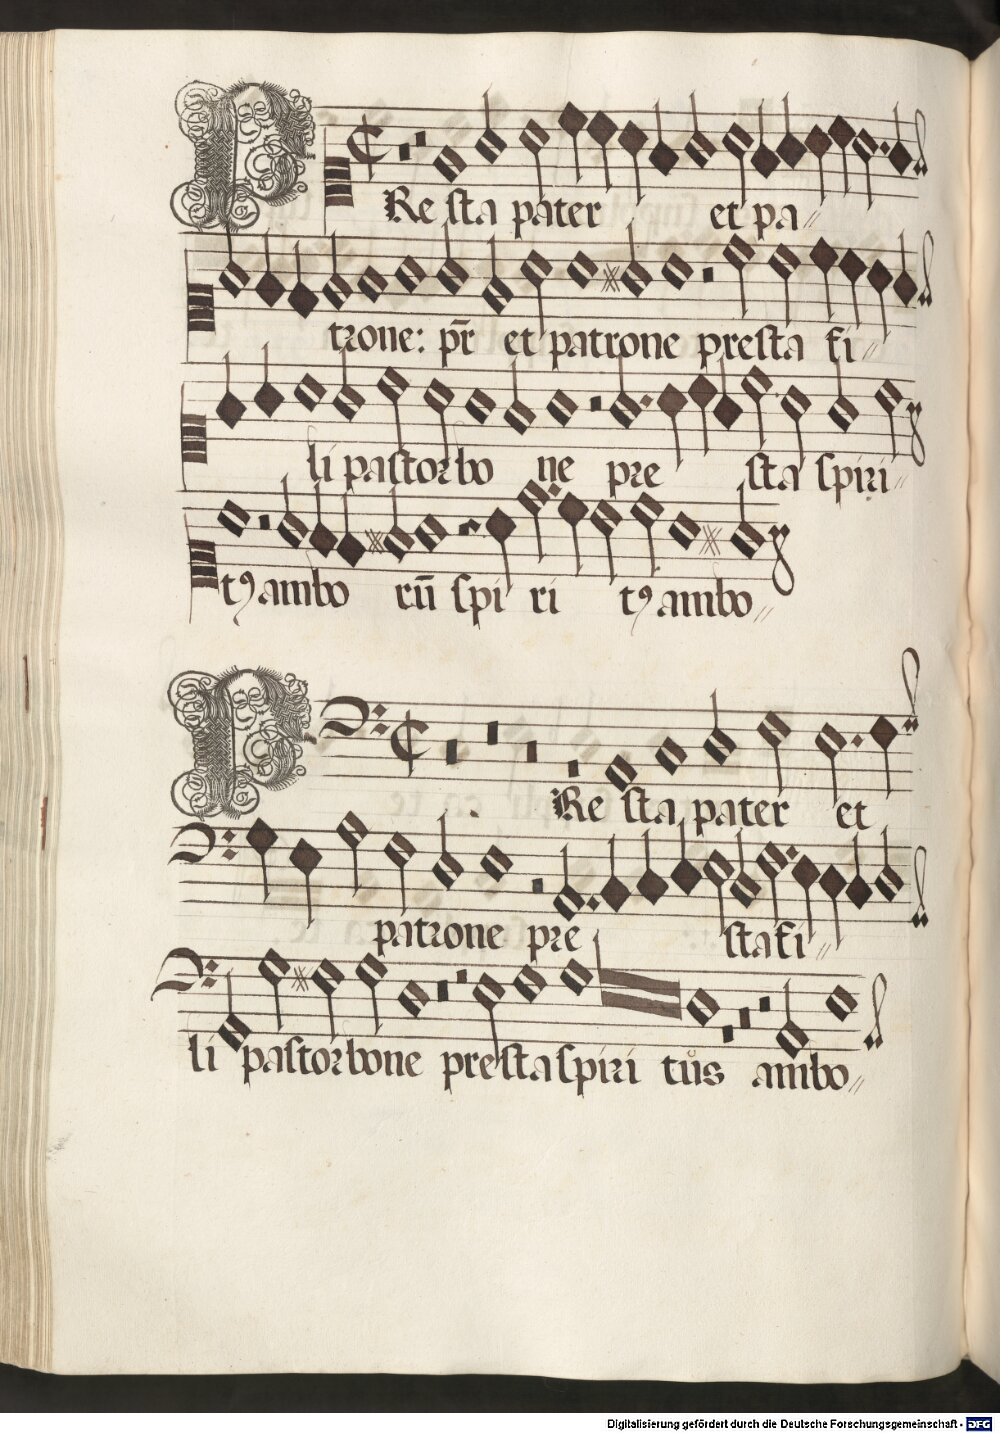 PResta pater et pa
trone: pr̄ et patrone presta fi
li pastor bo ne pre sta spiri
tꝰ ambo rū spi ri tꝰ ambo
PResta pater et
patrone pre sta fi
li pastor bone presta spiri tus ambo
Digitalisierung gefördert durch die Deutsche Forschungsgemeinschaft - DFG